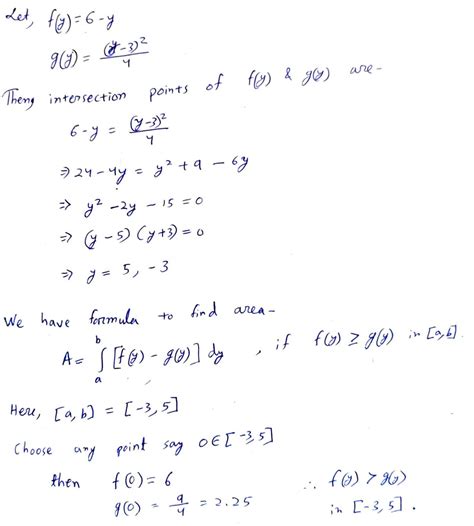 Let, f(y) = 6 - y
g(y) = (y-3)²/4
Theng intersection points of f(y) & g(y) are-
6-y = (y-3)²/4
⇒ 24 - 4y = y² + 9 - 6y
⇒ y² - 2y - 15 = 0
⇒ (y-5) (y+3) = 0
⇒ y = 5, -3
We have formula to find area-
A = ∫ₐᵇ [f(y) - g(y)] dy , if f(y) ≥ g(y) in [a,b].
Here, [a,b] = [-3, 5]
Choose any point say 0 ∈ [-3, 5]
then f(0) = 6 ∴ f(y) > g(y)
g(0) = 9/4 = 2.25 in [-3, 5].